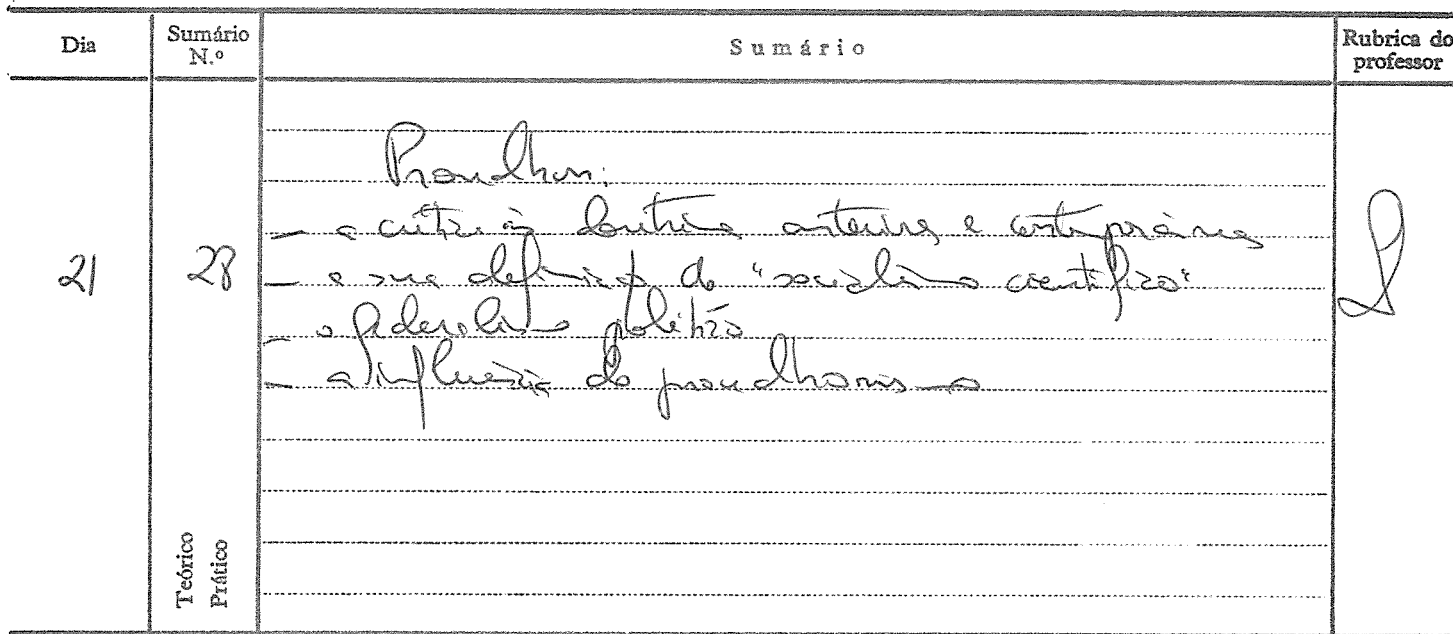 Dia
Sumário N.º
Sumário
Rubrica do professor
21
28
Proudhon:
– a crítica às doutrinas anteriores e contemporâneas
– a sua definição do "socialismo científico"
– o federalismo político
– a influência do proudhonismo
Teórico
Prático